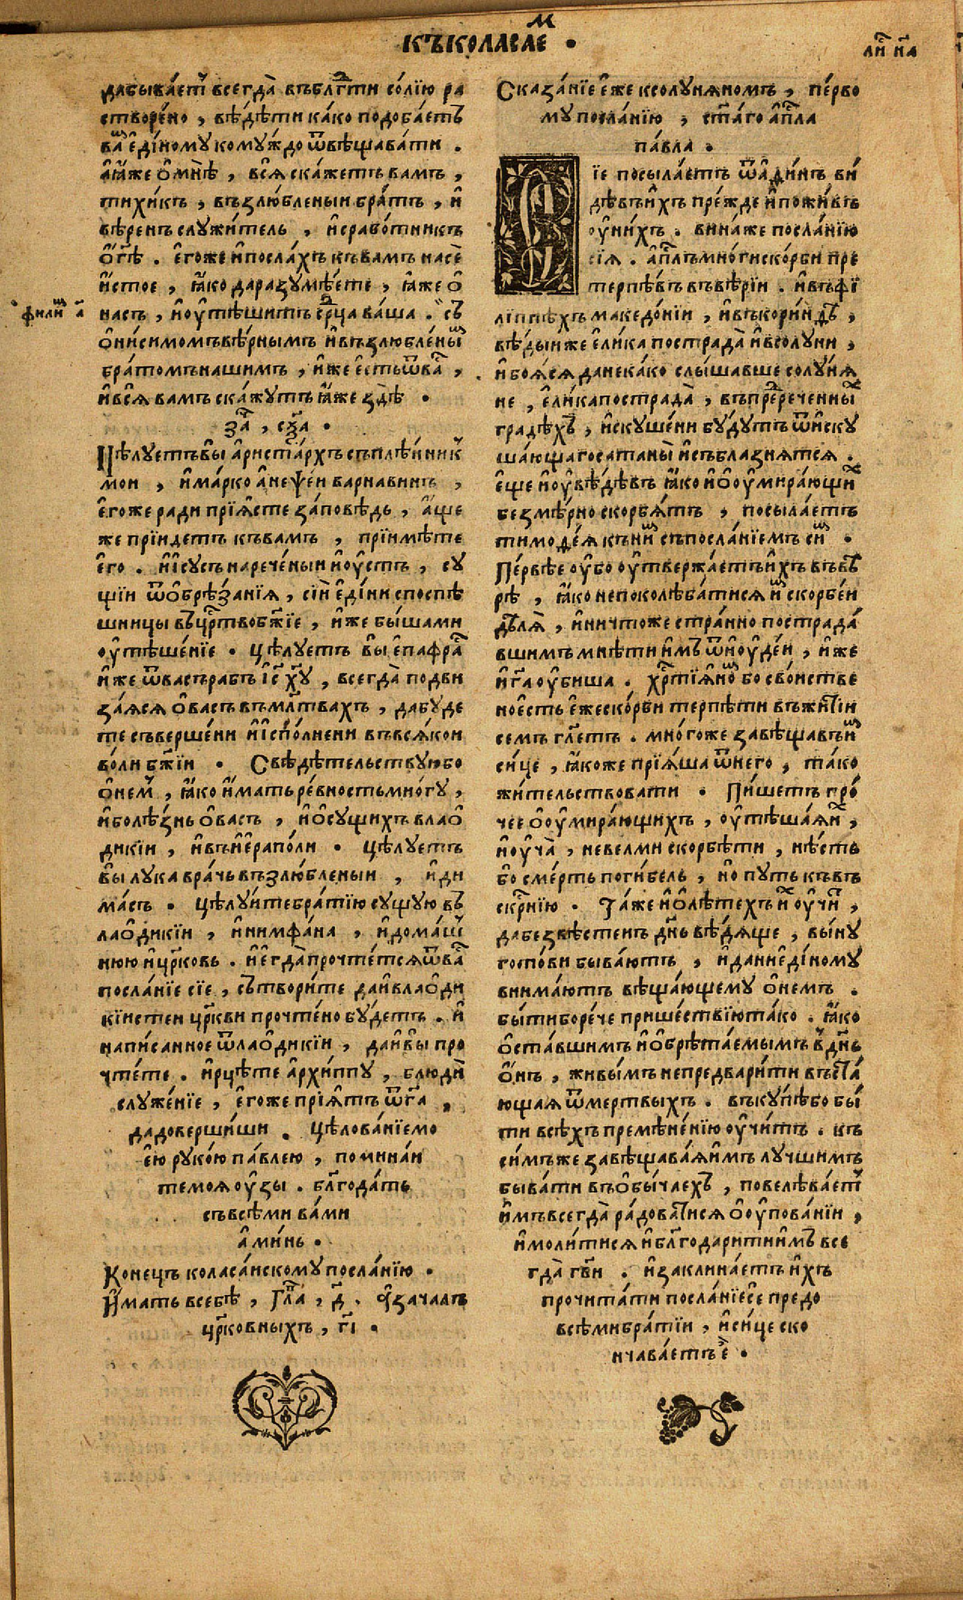 къколасаем •
да бывает всегда въблгти солїю ра
створено , ведети како подобаетъ
ва единому комуждо ѿвещавати .
ꙗже омне , вся скажетъ вамъ ,
тихикъ , възлюбленыи братъ , и
веренъ служитель , исработникъ
огѣ . егоже ипослахъ къвамъ насе
истое , ꙗко даразумеете , ꙗже о
насъ , иоутешитъ срца ваша . съ
онисимомъ вернымъ ивъзлюблены
братомъ нашимъ , иже естьѿва ,
ився вамъ скажутъ ꙗже зде •
за , сха •
Целуетъвы аристархъ съпленник
мои , имарко анеѱеи варнавинъ ,
егоже ради прїясте заповедь , аще
же прїидетъ къвамъ , прїимете
его . иисусъ нареченыи иоустъ , су
щїи ѿобрезанїя , сїи едини споспе
шницы въцртвобжїе , иже бышами
оутешенїе • целуетъ вы епафра
иже ѿвасърабъ іс хꙋ , всегда подви
заяся овасъ въмлтвахъ , дабуде
те съвершени иисполнени въвсякои
воли бжїи • Сведетельствуюбо
онем , ꙗко имать ревность многу ,
иболезнь овасъ , иосущихъ влао
дикїи , ивъиераполи • целуетъ
вы лука врачь възлюбленыи , иди
масъ • целуите братїю сущую въ
лаодикїи , инимфана , идомаш
нюю ицрковь . иегда прочтетсяѿва
посланїе сїе , сътворите даивлаоди
кїистеи цркви прочтено будетъ . и
написанное ѿлаодикїи , даивы про
чтете . ирцете архиппу , блюди
служенїе , егоже прїятъ ѿга ,
дадовершиши . целованїемо
ею рукою павлею , поминаи
темоя оузы . блгодать
съвсеми вами
аминь •
Конецъ коласаискому посланїю •
Имать всебе , глa , д . изачалъ
црковныхъ , гі •
Сказанїе еже ксолуняномъ , перво
му посланїю , стаго апла
павла •
Сїе посылаетъ ѿафинъ ви
девъихъ прежде ипоживъ
оунихъ . винаже посланїю
сїя . аплъ многискорби пре
терпевъ въверїи . ивъфи
липпехъ македонїи , ивъкоринфъ ,
ведыи же елика пострада ивсолуни ,
ибояся данекако слышавше солуня
не , еликапострада , въпреречены
градехъ , искушени будутъ ѿиску
шающагосатаны исъблазнятся .
еще иоуведевъ ꙗко иооумирающи
безмерно скорбятъ , посылаетъ
тимофея кни съпосланїемъ си •
Первее оубо оутвержаетъихъ въве
ре , ꙗко непоколебатися и скорбеи
деля , иничтоже странно пострада
вшимъ мнети имъ ѿиоудеи , иже
ига оубиша . хртїяно бо своиствe
ноесть ежескорби терпети въжитїи
семъ глетъ . многоже завещавъи
сице , ꙗкоже прїяша ѿнего , тако
жительствовати • Пишетъ про
чее ооумирающихъ , оутешаяи ,
иоуча , невелми скорбети , несть
бо смерть погибель , но путь къвъ
скрнїю . Таже иолетехъ и оучи ,
дабезвестенъ днь ведяще , выну
господви бываютъ , иданиединому
внимаютъ вещающему онемъ .
бытиборече пришествїютако . ꙗко
оставшимъ иобретаемымъ вднь
онъ , живымъ непредварити въста
ющая ѿмертвыхъ . въкупебо бы
ти всехъ премененїю оучитъ . къ
симъже завещаваяимъ лучшимъ
бывати въобычаехъ , повелевает
имъ всегда радоватися ооупованїи ,
имолитися иблгодаритиимъ все
гда гви . изаклинаетъихъ
прочитати посланїесе предо
всемибратїи , исице ско
нчаваетъе •